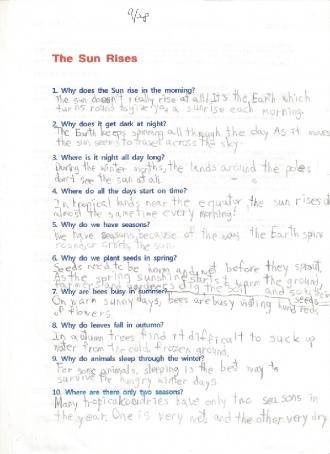 9/28
The Sun Rises
1. Why does the Sun rise in the morning?
The sun doesn't really rise at all! It's the Earth which
turns round to give you a sunrise each morning.
2. Why does it get dark at night?
The Earth keeps spinning all through the day. As it moves
the sun seems to travel across the sky.
3. Where is it night all day long?
During the winter months, the lands around the poles
don't see the sun at all.
4. Where do all the days start on time?
In tropical lands near the equator the sun rises
almost the same time every morning!
5. Why do we have seasons?
We have seasons, because of the way the Earth spins
round or orbits the sun.
6. Why do we plant seeds in spring?
Seeds need to be warm and wet before they sprout.
As the spring sunshine starts to warm the ground,
farmers and gardeners and sow their
seeds
7. Why are bees busy in summer?
On warm sunny days, bees are busy visiting hundreds
of flowers.
8. Why do leaves fall in autumn?
In autumn trees find it difficult to suck up
water from the cold, frozen ground.
9. Why do animals sleep through the winter?
For some animals, sleeping is the best way to
survive the hungry winter days.
10. Where are there only two seasons?
Many tropical countries have only two seasons in
the year. One is very wet and the other very dry